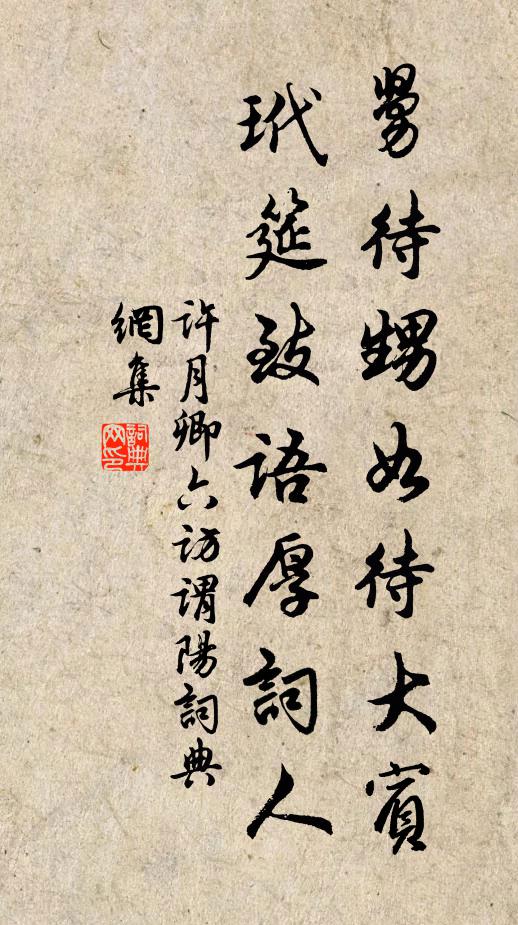 舅待甥如待大賓
玳筵致語厚詞人
許月卿六訪謂陽詞典
網集
詞典
网印